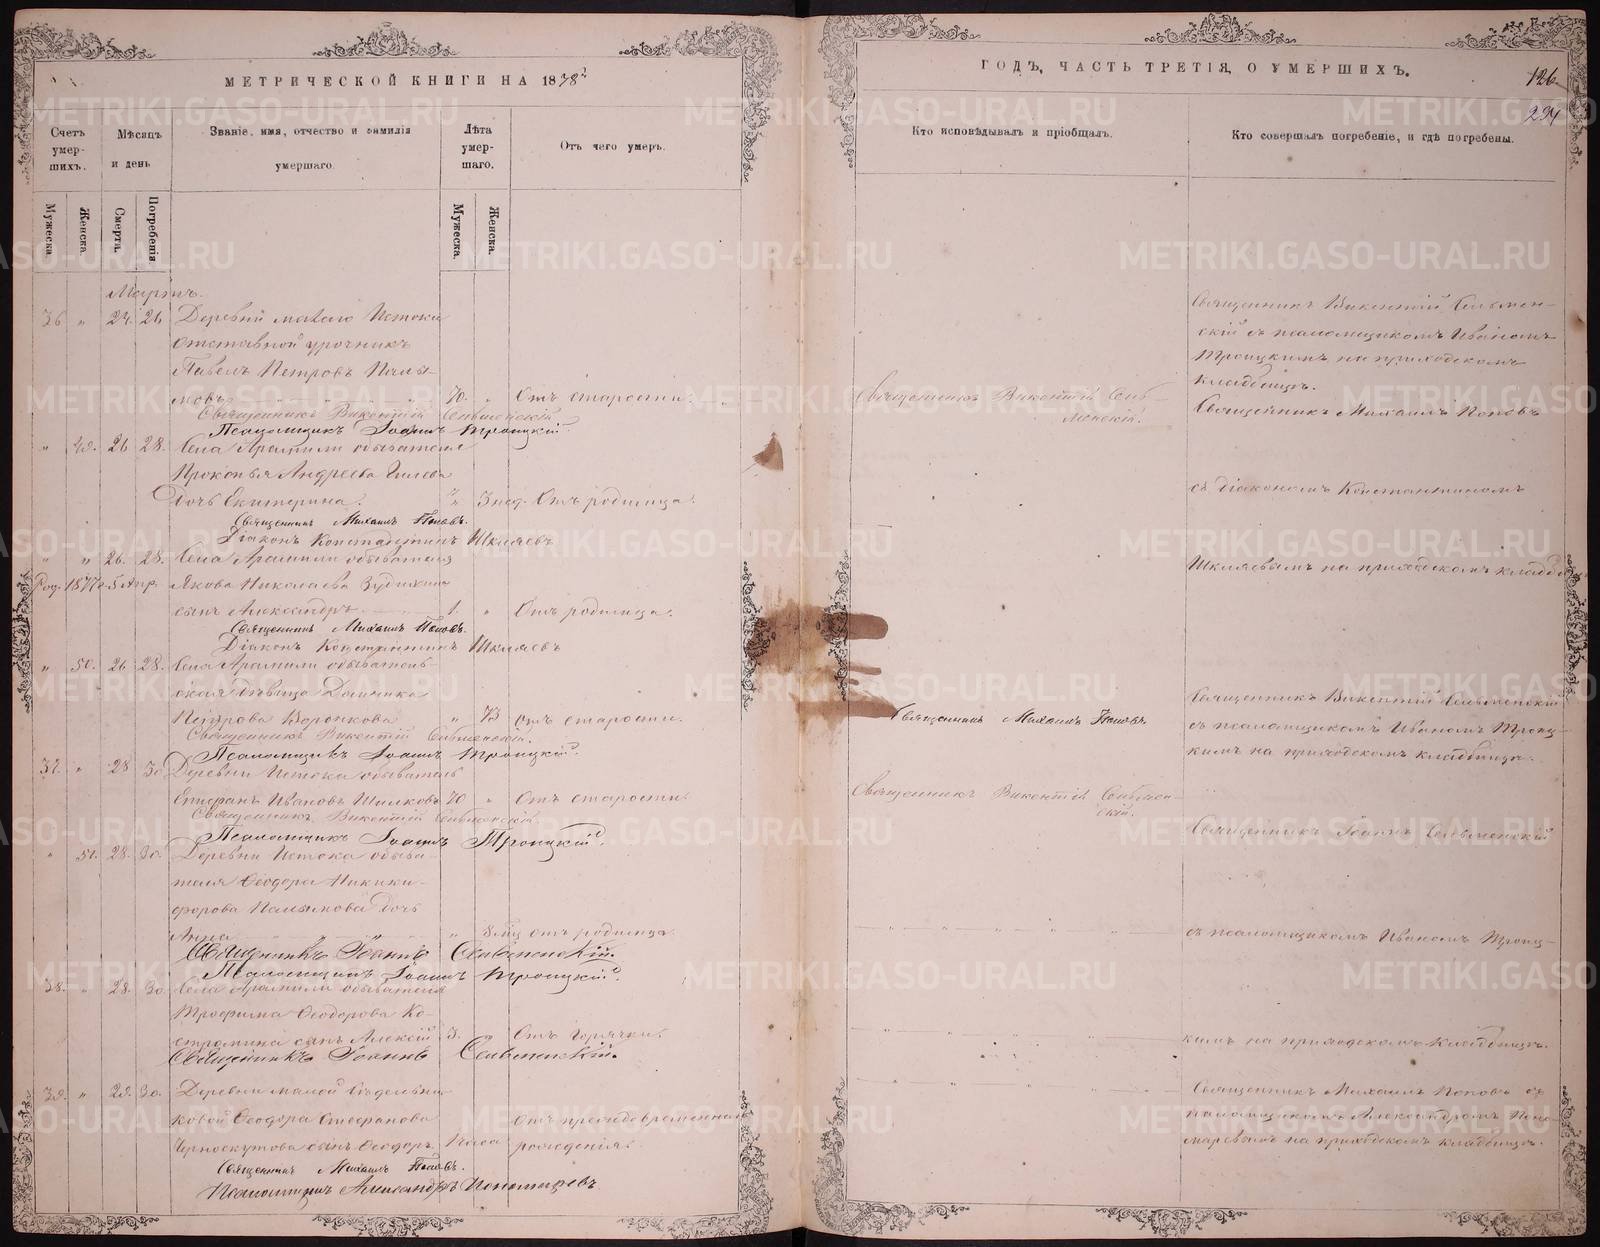 МЕТРИЧЕСКОЙ КНИГИ НА 1878
Счетъ умерших.
Мѣсяцъ и день
Званіе, имя, отчество и фамилія умершаго.
Лѣта умершаго.
Отъ чего умеръ.
Мужеска.
Женска.
Смерти.
Погребенія
Мужеска.
Женска.
Мартъ.
36 " 24 26 Деревни Малаго Истока
отставной урочникъ
Павелъ Петровъ
70. " Отъ старости.
Священникъ Викентій Сельменскій
Псаломщикъ Іоаннъ Троицкій.
" 49. 26 28. Села Арамили обывателя
Прокопья Андреева
дочь Екатерина. " 3 нед. Отъ родимца.
Священникъ Михаилъ Поповъ.
Діаконъ Константинъ Шкляевъ
" " 26. 28. Села Арамили обывателя
Род. 1877 г. 5 Апр. Якова Николаева
сынъ Александръ 1. " Отъ родимца.
Священникъ Михаилъ Поповъ.
Діаконъ Константинъ Шкляевъ
" 50. 26 28. Села Арамили обыватель-
ская дѣвица Домника
Петрова Воронкова " 73 отъ старости.
Священникъ Викентій Сельменскій.
Псаломщикъ Іоаннъ Троицкій.
37. " 28 30 Деревни Истока обыватель
Епифанъ Ивановъ 70 " Отъ старости.
Священникъ Викентій Сельменскій.
Псаломщикъ Іоаннъ Троицкій.
" 51. 28. 30. Деревни Истока обыва-
теля Ѳеодора Никики-
форова дочь
Анна " отъ родимца.
Священникъ Іоаннъ Сельменскій.
Псаломщикъ Іоаннъ Троицкій.
38. " 28. 30. Села Арамили обывателя
Трофима Ѳеодорова Ко-
стромина сынъ Алексій 3. " Отъ горячки.
Священникъ Іоаннъ Сельменскій.
39. " 29. 30. Деревни малой Сѣдельни-
ковой Ѳеодора Стефанова
Черноскутова сынъ Ѳеодоръ. часа
Отъ преждевременнаго
рожденія.
Священникъ Михаилъ Поповъ.
Псаломщикъ Александръ Пономаревъ
ГОДЪ, ЧАСТЬ ТРЕТІЯ, О УМЕРШИХЪ.
126.
294
Кто исповѣдывалъ и пріобщалъ.
Кто совершалъ погребеніе, и гдѣ погребены.
Священникъ Викентій Сельмен-
скій съ псаломщикомъ Иваномъ
Троицкимъ на приходскомъ
кладбищѣ.
Священникъ Викентій Сель-
менскій.
Священникъ Михаилъ Поповъ
съ діакономъ Константиномъ
Шкляевымъ на приходскомъ кладби
Священникъ Михаилъ Поповъ
Священникъ Викентій Сельменскій
съ псаломщикомъ Иваномъ Троиц-
кимъ на приходскомъ кладбищѣ.
Священникъ Викентій Сельмен-
скій.
Священникъ Іоаннъ Сельменскій
съ псаломщикомъ Иваномъ Троиц-
кимъ на приходскомъ кладбищѣ.
Священникъ Михаилъ Поповъ съ
псаломщикомъ Александромъ Поно
маревымъ на приходскомъ кладбищѣ.
METRIKI.GASO-URAL.RU